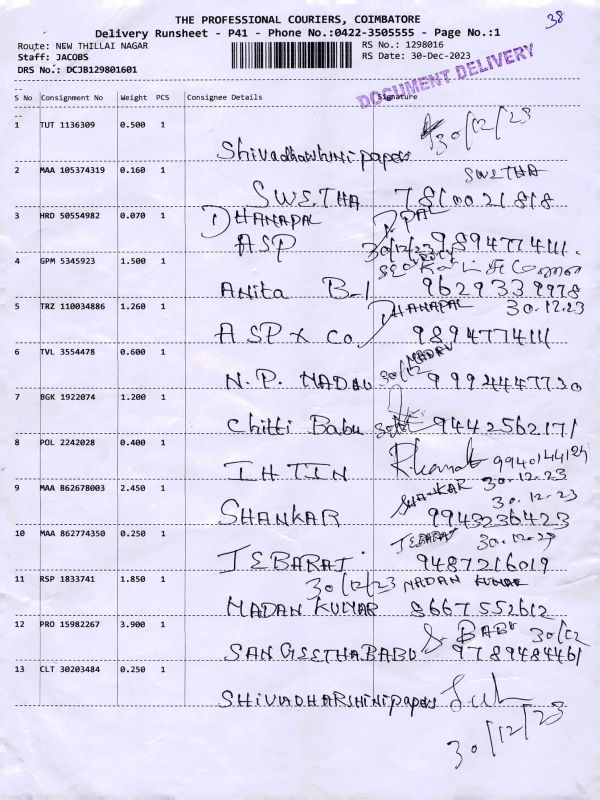 38
THE PROFESSIONAL COURIERS, COIMBATORE
Delivery Runsheet - P41 - Phone No.:0422-3505555 - Page No.:1
Route: NEW THILLAI NAGAR
RS No.: 1298016
Staff: JACOBS
RS Date: 30-Dec-2023
DRS No.: DCJB129801601
DOCUMENT DELIVERY
S No Consignment No Weight PCS Consignee Details Signature
1 TUT 1136309 0.500 1
30/12/23
papers
2 MAA 105374319 0.160 1
SWETHA
SWETHA 7810021818
3 HRD 50554982 0.070 1
DHANAPAL DPAL
ASP 30/12/23 9894777411.
4 GPM 5345923 1.500 1
Anita B-1 9629339978
5 TRZ 110034886 1.260 1
DHANAPAL 30.12.23
ASP & Co 989477411
6 TVL 3554478 0.600 1
30/12
N.P. MADAV 9994447730
7 BGK 1922074 1.200 1
Chitti Babu 9442562171
8 POL 2242028 0.400 1
IHTIN 9940144124
9 MAA 862678003 2.450 1
SHANKAR 30.12.23
30.12.23
SHANKAR 9943236423
10 MAA 862774350 0.250 1
JEBARAJ 30.12.23
JEBARAJ 9487216019
11 RSP 1833741 1.850 1
30/12/23 MADAN KUMAR
MADAN KUMAR 8667552612
12 PRO 15982267 3.900 1
S BABU 30/12
SANGEETHABABU 9789484461
13 CLT 30203484 0.250 1
SHIVADHARSHINI papers
30/12/23